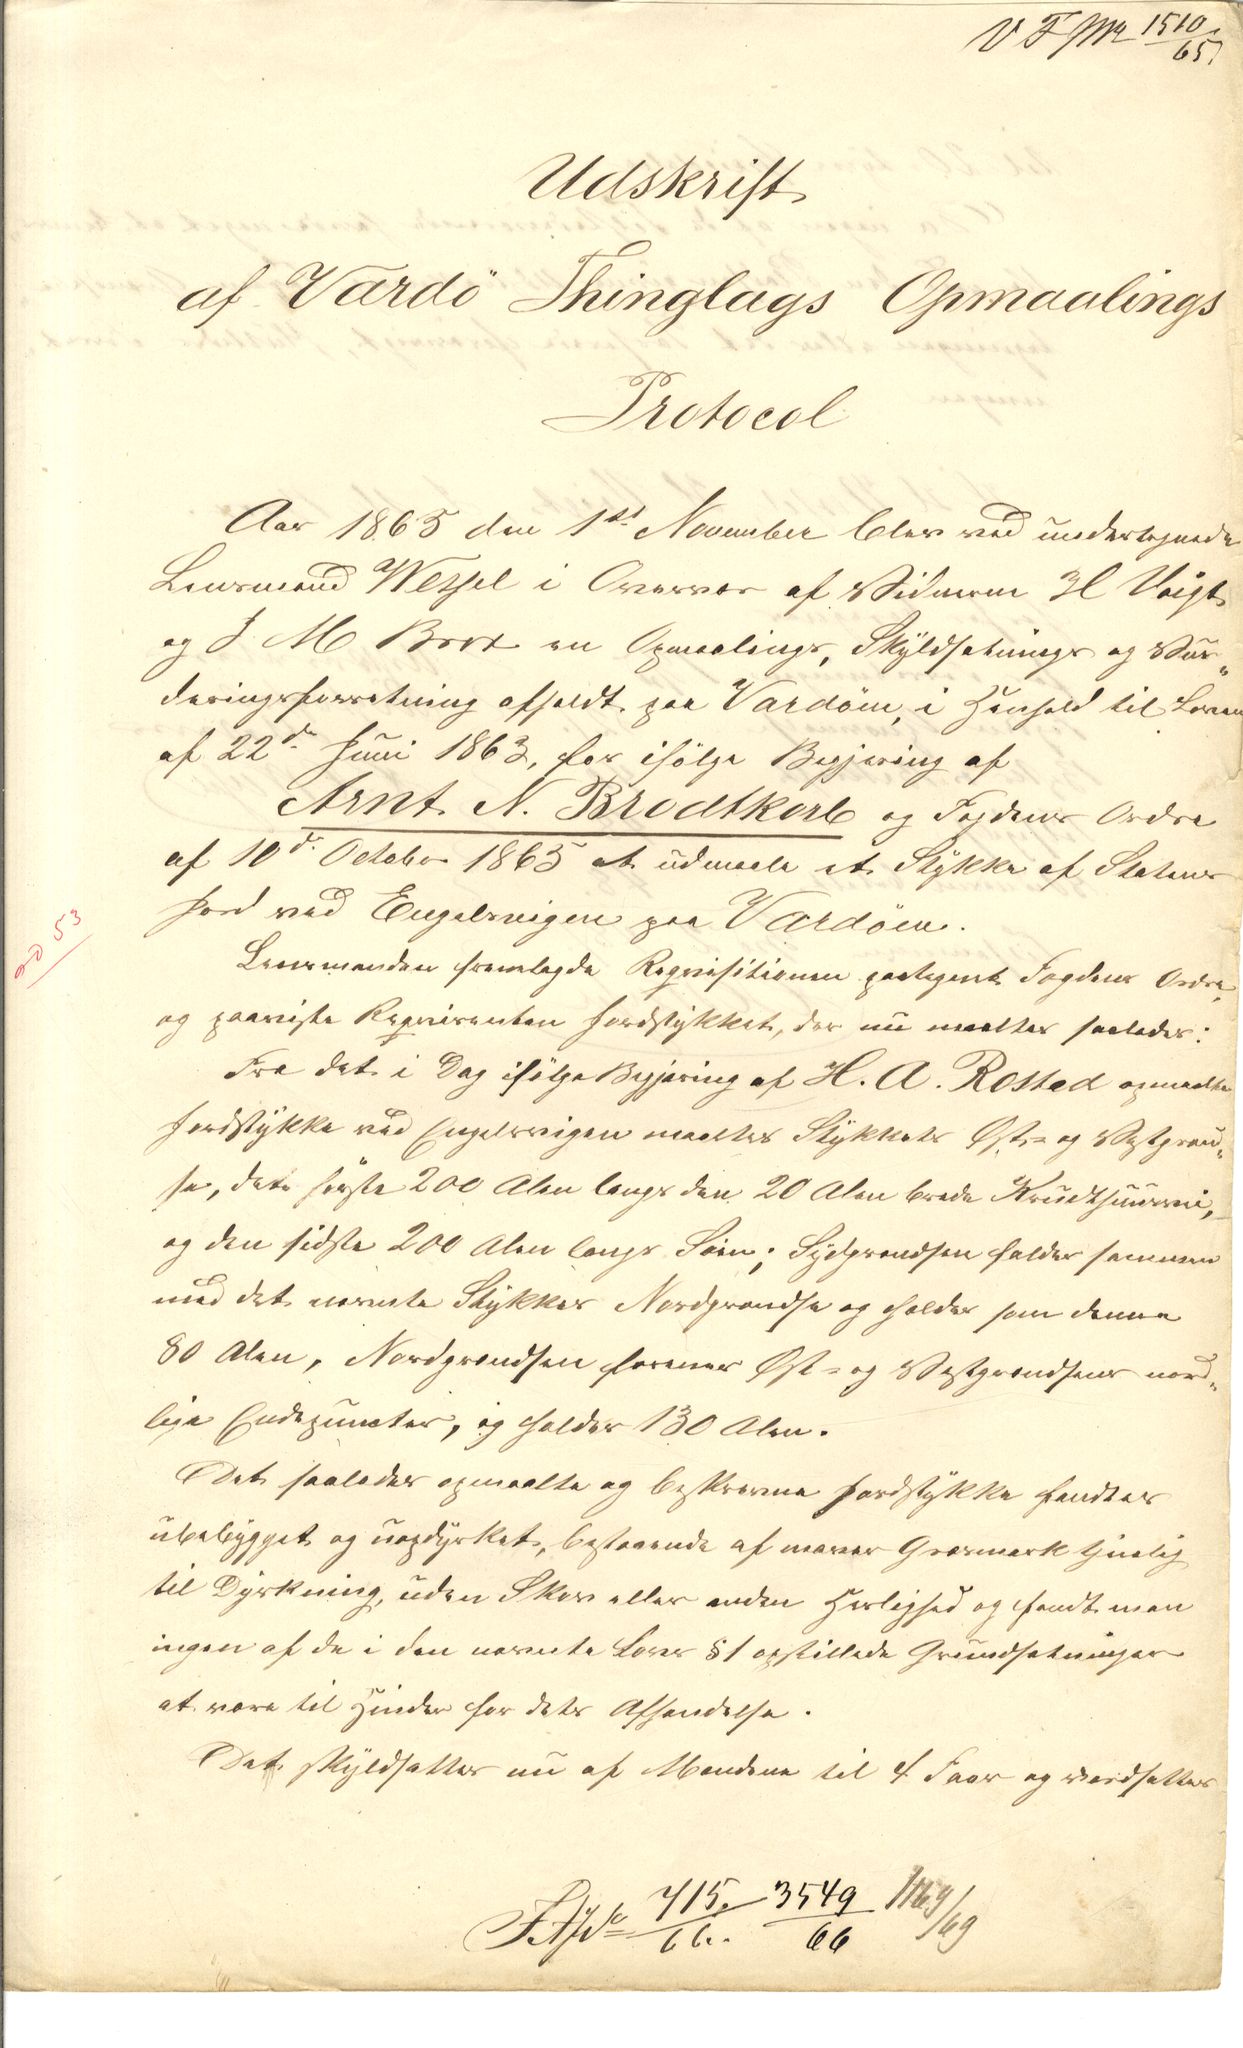 V F No 1510/65.
Udskrift
af Vardö Thinglags Opmaalings
Protocol
Aar 1865 den 1ste November blev ved undertegnede
Lensmand Wessel i Overvær af Vidnerne H Voigt
og J. M Brox en Opmaalings, Skyldsætnings og Vur„
deringsforretning afholdt paa Vardöen, i Henhold til Loven
af 22de Juni 1863, for ifölge Begjæring af
Arnt N. Brodtkorb og Fogdens Ordre
af 10de October 1865 at udmaale et Stykke af Statens
Jord ved Engelsvigen paa Vardöen.
Lensmanden fremlagde Reqvisitionen paategnet Fogdens Ordre,
og paaviste Reqvirenten Jordstykket, der nu maaltes saaledes:
Fra det i Dag ifölge Begjæring af H. A. Rostad opmaalte
Jordstykke ved Engelsvigen maaltes Stykkets Øst- og Vestgrænd„
se, det første 200 Alen langs den 20 Alen brede Krudthuusvei,
og den sidste 200 Alen langs Søen; Sydgrændsen falder sammen
med det nævnte Stykkes Nordgrændse og holder som denne
80 Alen, Nordgrændsen forener Øst- og Vestgrændsens nord„
lige Endepuncter, og holder 130 Alen.
Det saaledes opmaalte og beskrevne Jordstykke fandtes
ubebygget og uopdyrket, bestaaende af maver Græsmark tjenlig
til Dyrkning, uden Skov eller anden Herlighed og fandt man
ingen af de i den nævnte Lovs § 1 opstillede Grundsætninger
at være til Hinder for dets Afhændelse.
Det skyldsattes nu af Mændene til 4 Faar og værdsattes
715./66. 3549/66 1169/69
53